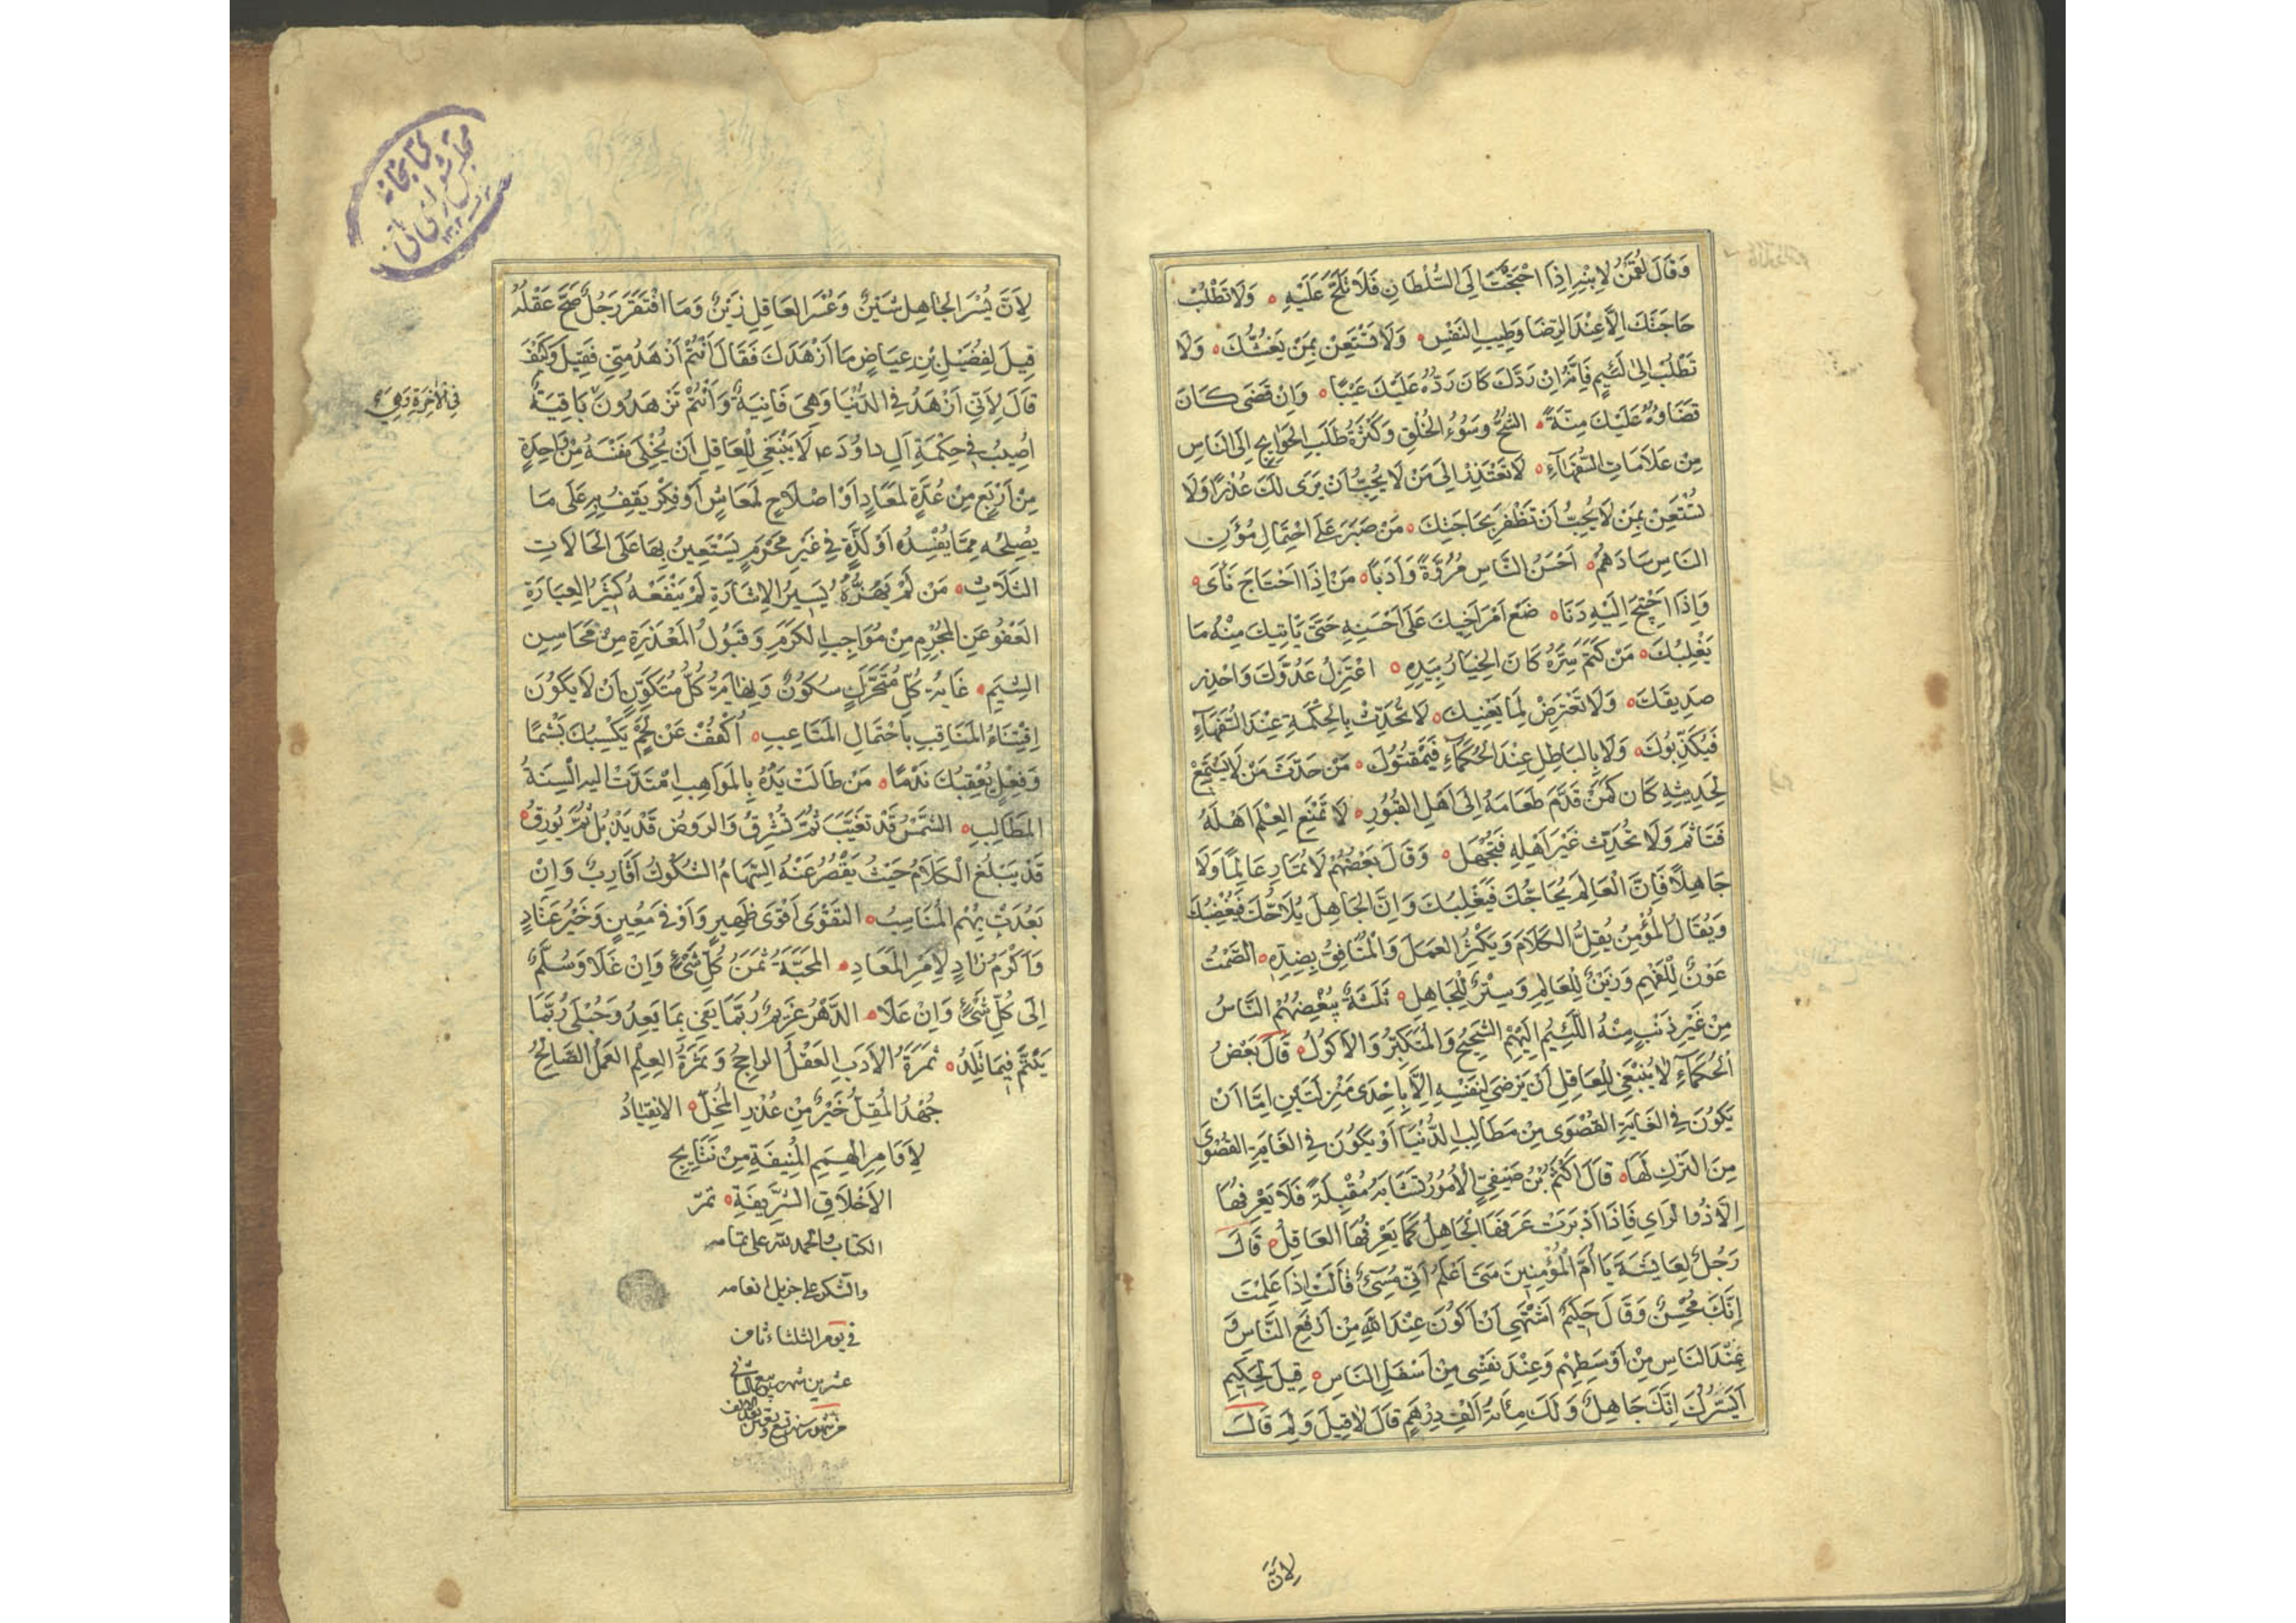 وَقَالَ لُقْمٰنُ لِابْنِهِ اِذَا احْتَجْتَ اِلَى السُّلْطَانِ فَلَا تُلِحَّ عَلَيْهِ وَلَا تَطْلُبْ
حَاجَتَكَ اِلَّا عِنْدَ الرِّضَا وَطِيبِ النَفْسِ وَلَا تَسْتَعِنْ بِمَنْ يَغُشُّكَ وَلَا
تَطْلُبْ اِلىٰ لَئِيمٍ فَاِنَّهُ اِنْ رَدَّكَ كَانَ رَدُّهُ عَلَيْكَ عَيْبًا وَاِنْ قَضَى كَانَ
قَضَاوُهُ عَلَيْكَ مِنَّةً الشُّحُّ وَسُوُءُ الْخُلْقِ وَكَثْرَةُ طَلَبِ الْحَوَايِجِ اِلَى النَاسِ
مِنْ عَلَامَاتِ السُّفَهَآءِ لَا تَعْتَذِرْ اِلَى مَنْ لَا يُحِبُّ اَنْ يَرَى لَكَ عُذْرًا وَلَا
تَسْتَعِنْ بِمَنْ لَا يُحِبُّ اَنْ تَظْفَرَ بِحَاجَتِكَ مَنْ صَبَرَ عَلَى احْتِمَالِ مُؤَنِ
النَاسِ سَادَهُمْ اَحْسَنُ النَّاسِ مُرُوَّةً وَاَدَبًا مَنْ اِذَا احْتَاجَ نَأَى
وَاِذَا احْتِيجَ اِلَيْهِ دَنَا ضَعْ اَمْرَ اَخِيكَ عَلَى اَحْسَنِهِ حَتَّى يَاْتِيكَ مِنْهُ مَا
يَغْلِبُكَ مَنْ كَتَمَ سِرَّهُ كَانَ الْخِيَارُ بِيَدِهِ اعْتَزِلْ عَدُوَّكَ وَاحْذَرْ
صَدِيقَكَ وَلَا تَعْتَرِضْ لِمَا يَعْنِيكَ لَا تُحَدِّثْ بِالْحِكْمَةِ عِنْدَ السُّفَهَآءِ
فَيُكَذِّبُوكَ وَلَا بِالْبَاطِلِ عِنْدَ الْحُكَمَآءِ فَيَمْقُتُوكَ مَنْ حَدَّثَ مَنْ لَا يَسْتَمِعُ
لِحَدِيثِهِ كَانَ كَمَنْ قَدَّمَ طَعَامَهُ اِلَى اَهْلِ الْقُبُورِ لَا تَمْنَعِ الْعِلْمَ اَهْلَهُ
فَتَاْثَمَ وَلَا تُحَدِّثْ غَيْرَ اَهْلِهِ فَتُجَهَّلَ وَقَالَ بَعْضُهُمْ لَا تُمَارِ عَالِمًا وَلَا
جَاهِلًا فَاِنَّ الْعَالِمَ يُحَاجُّكَ فَيَغْلِبُكَ وَاِنَّ الْجَاهِلَ يُلَاحُّكَ فَيُغْضِبُكَ
وَيُقَالُ الْمُؤْمِنُ يُقِلُّ الْكَلَامَ وَيُكْثِرُ الْعَمَلَ وَالْمُنَافِقُ بِضِدِّهِ الصَّمْتُ
عَوْنٌ لِلْفَهِيمِ وَزَيْنٌ لِلْعَالِمِ وَسِتْرٌ لِلْجَاهِلِ ثَلٰثَةٌ يُبْغِضُهُمُ النَّاسُ
مِنْ غَيْرِ ذَنْبٍ مِنْهُ اللَّئِيمُ اِلَيْهِمْ الشَحِيحُ وَالْمُتَكَبِّرُ وَالْاَكُولُ قَالَ بَعْضُ
الْحُكَمَآءِ لَا يَنْبَغِي لِلْعَاقِلِ اَنْ يَرْضَى لِنَفْسِهِ اِلَّا بِاِحْدَى مَنْزِلَتَيْنِ اِمَّا اَنْ
يَكُونَ فِي الْغَايَةِ الْقُصْوَى مِنْ مَطَالِبِ الدُّنْيَا اَوْ يَكُونَ فِي الْغَايَةِ الْقُصْوَى
مِنَ التَرْكِ لَهَا قَالَ اَكْثَمُ بْنُ صَيْفِيٍّ الْاُمُورُ تَتَشَابَهُ مُقْبِلَةً فَلَا يَعْرِفُهَا
اِلَّا ذُو الرَاىِ فَاِذَا اَدْبَرَتْ عَرَفَهَا الْجَاهِلُ كَمَا يَعْرِفُهَا الْعَاقِلُ قَالَ
رَجُلٌ لِعَايِشَةَ يَا اُمَّ الْمُؤْمِنِينَ مَتَى اَعْلَمُ اَنِّي مُسِيٌ قَالَتْ اِذَا عَلِمْتَ
اِنَّكَ مُحْسِنٌ وَقَالَ حَكِيمٌ اَشْتَهِي اَنْ اَكُونَ عِنْدَ اللهِ مِنْ اَرْفَعِ النَّاسِ وَ
عِنْدَ النَاسِ مِنْ اَوْسَطِهِمْ وَعِنْدَ نَفْسِي مِنْ اَسْفَلِ النَاسِ قِيلَ لِحَكِيمٍ
اَيَسُرُّكَ اِنَّكَ جَاهِلٌ وَلَكَ مِائَةُ اَلْفِ دِرْهَمٍ قَالَ لَا قِيلَ وَلِمَ قَالَ
لِاَنَّ
كتابخانه
مجلس شورای ملی
لِاَنَّ يُسْرَ الْجَاهِلِ شَيْنٌ وَعُسْرَ الْعَاقِلِ زَيْنٌ وَمَا افْتَقَرَ رَجُلٌ صَحَّ عَقْلُهُ
قِيلَ لِفُضَيْلِ بْنِ عِيَاضٍ مَا اَزْهَدَكَ فَقَالَ اَنْتُمْ اَزْهَدُ مِنِّي فَقِيلَ وَكَيْفَ
قَالَ لِاَنِّي اَزْهَدُ فِي الدُّنْيَا وَهِيَ فَانِيَةٌ وَاَنْتُمْ تَزْهَدُونَ بَاقِيَةٌ
فِي الْاٰخِرَةِ وَهِيَ
اُصِيبَ فِي حِكْمَةِ اٰلِ دَاوُدَ ع لَا يَنْبَغِي لِلْعَاقِلِ اَنْ يُخْلِىَ نَفْسَهُ مِنْ وَاحِدَةٍ
مِنْ اَرْبَعٍ مِنْ عُدَّةٍ لِمَعَادٍ اَوْ اِصْلَاحٍ لِمَعَاشٍ اَوْ فِكْرٍ يَقِفُ بِهِ عَلَى مَا
يُصْلِحُهُ مِمَّا يُفْسِدُهُ اَوْ لَذَّةٍ فِي غَيْرِ مُحَرَّمٍ يَسْتَعِينُ بِهَا عَلَى الْحَالَاتِ
الثَلَاثِ مَنْ لَمْ يَهُزُّهُ يَسِيرُ الْاِشَارَةِ لَمْ يَنْفَعْهُ كَثِيرُ الْعِبَارَةِ
الْعَفْوُ عَنِ الْمُجْرِمِ مِنْ مُوَاجِبِ الْكَرَمِ وَقَبُولُ الْمَعْذِرَةِ مِنْ مَحَاسِنِ
الشِّيَمِ غَايَةُ كُلِّ مُتَحَرِّكٍ سُكُونٌ وَنِهَايَةُ كُلِّ مُتَكَوِّنٍ اَنْ لَا يَكُونَ
اِقْتِنَاءُ الْمَنَاقِبِ بِاحْتِمَالِ الْمَتَاعِبِ اُكْفُفْ عَنْ لَحْمٍ يَكْسِبُكَ بَشَمًا
وَفِعْلٍ يُعْقِبُكَ نَدَمًا مَنْ طَالَتْ يَدُهُ بِالْمَوَاهِبِ امْتَدَّتْ اِلَيْهِ اَلْسِنَةُ
الْمَطَالِبِ الشَّمْسُ قَدْ تَغَيَّبَ ثُمَّ تُشْرِقُ وَالرَوضُ قَدْ يَذْبُلُ ثُمَّ يُورِقُ
قَدْ يَبْلُغُ الْكَلَامُ حَيْثُ يَقْصُرُ عَنْهُ السِّهَامُ الشُكُوكُ اَقَارِبُ وَاِنْ
بَعُدَتْ بِهِمُ الْمَنَاسِبُ التَقْوَى اَقْوَى ظَهِيرٍ وَاَوْفَى مُعِينٍ وَخَيْرُ عَتَادٍ
وَاَكْرَمُ زَادٍ لِاَمْرِ الْمَعَادِ الْمَحَبَّةُ ثَمَنُ كُلِّ شَيْءٍ وَاِنْ غَلَا وَسُلَّمٌ
اِلَى كُلِّ شَيْءٍ وَاِنْ عَلَا الدَّهْرُ غَرِيمٌ رُبَّمَا يَفِي بِمَا يَعِدُ وَحُبْلَى رُبَّمَا
يُتْئِمُ فِيمَا تَلِدُ ثَمَرَةُ الْاَدَبِ الْعَقْلُ الرَاجِحُ وَثَمَرَةُ الْعِلْمِ الْعَمَلُ الصَّالِحُ
جُهْدُ الْمُقِلِّ خَيْرٌ مِنْ عُذْرِ الْمُخِلِّ الْاِنْقِيَادُ
لِاَوَامِرِ الْهِمَمِ الْمُنِيفَةِ مِنْ نَتَايِجِ
الْاَخْلَاقِ الشَّرِيفَةِ تمّ
الكتاب والحمد لله على تمامه
والشكر على جزيل انعامه
فى يوم الثلثاء ثامن
عشرين شهر ربيع الثانى